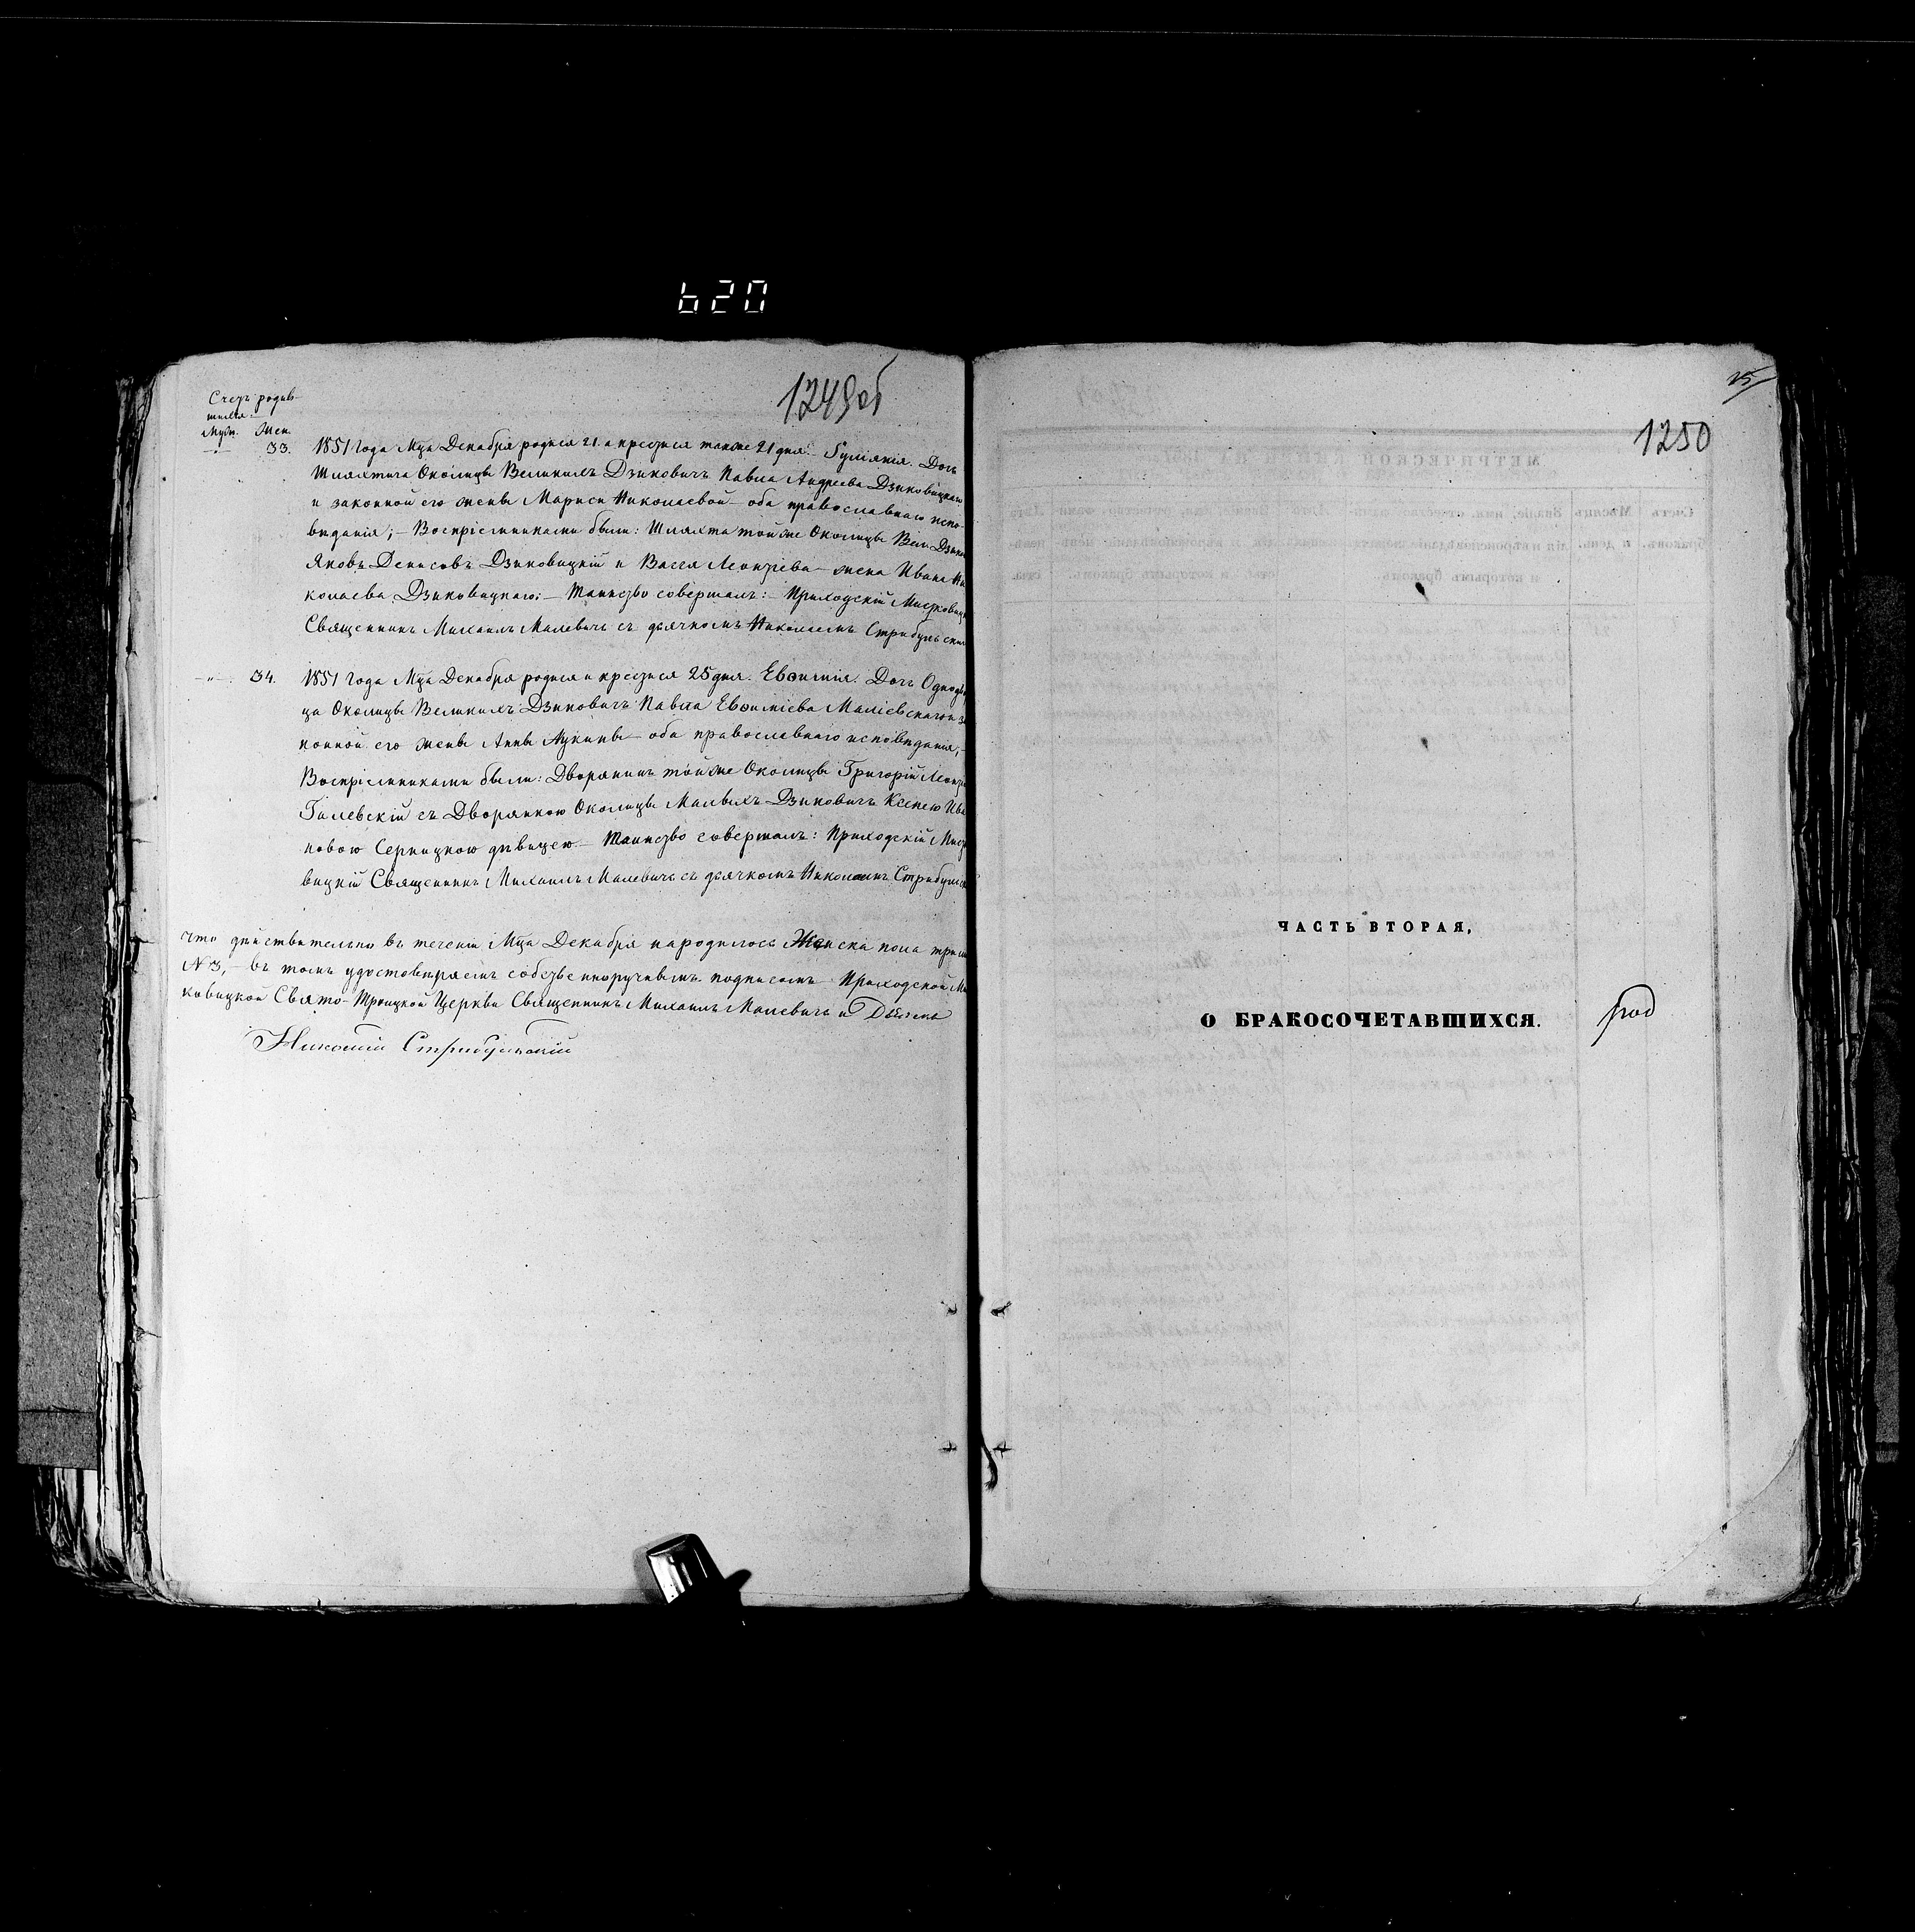 620
1249об
Счетъ родив-
шихся.
Муж. Жен.
33. 1851 Года Мца Декабря родися 21. а крестися также 21 дня. Іуліянія. Дочь
Шляхтича Околицы Великихъ Дзиковичъ Павла Андреева Дзиковицкаго
и законной его жены Мариси Николаевой – оба православнаго испо-
вѣданія; – Воспріемниками были: Шляхта той же Околицы Вел. Дзико
Яковъ Денисовъ Дзиковицкій и Васса Леонтіева – жена Ивана Ни
колаева Дзиковицкаго; – Таинство совершалъ: – Приходскій Мистковиц
Священникъ Михаилъ Малевичъ съ дьячкомъ Николаемъ Стрибульским
–"– 34. 1851 Года Мца Декабря родися и крестися 25 дня. Евѳимія. Дочь Однодв
ца Околицы Великихъ Дзиковичъ Павла Евѳиміева Маліевскаго и за
конной его жены Анны Лукины – оба православнаго исповѣданія, –
Воспріемниками были: Дворянинъ той же Околицы Григорій Леонтіе
Галевскій съ Дворянкою Околицы Малыхъ Дзиковичъ Ксенею Ива
новою Серницкою дѣвицею. – Таинство совершалъ: Приходскій Мистко
вицкій Священникъ Михаилъ Малевичъ съ дьячкомъ Николаемъ Стрибульск
Что дѣйствительно въ теченіи Мца Декабря народилось Женска пола три
№ 3, – въ томъ удостовѣряемъ собственноручнымъ подписомъ Приходской Ми
ковицкой Свято-Троицкой Церкви Священникъ Михаилъ Малевичъ и Дьячекъ
Николай Стрибульскій
25
1250
ЧАСТЬ ВТОРАЯ,
О БРАКОСОЧЕТАВШИХСЯ.